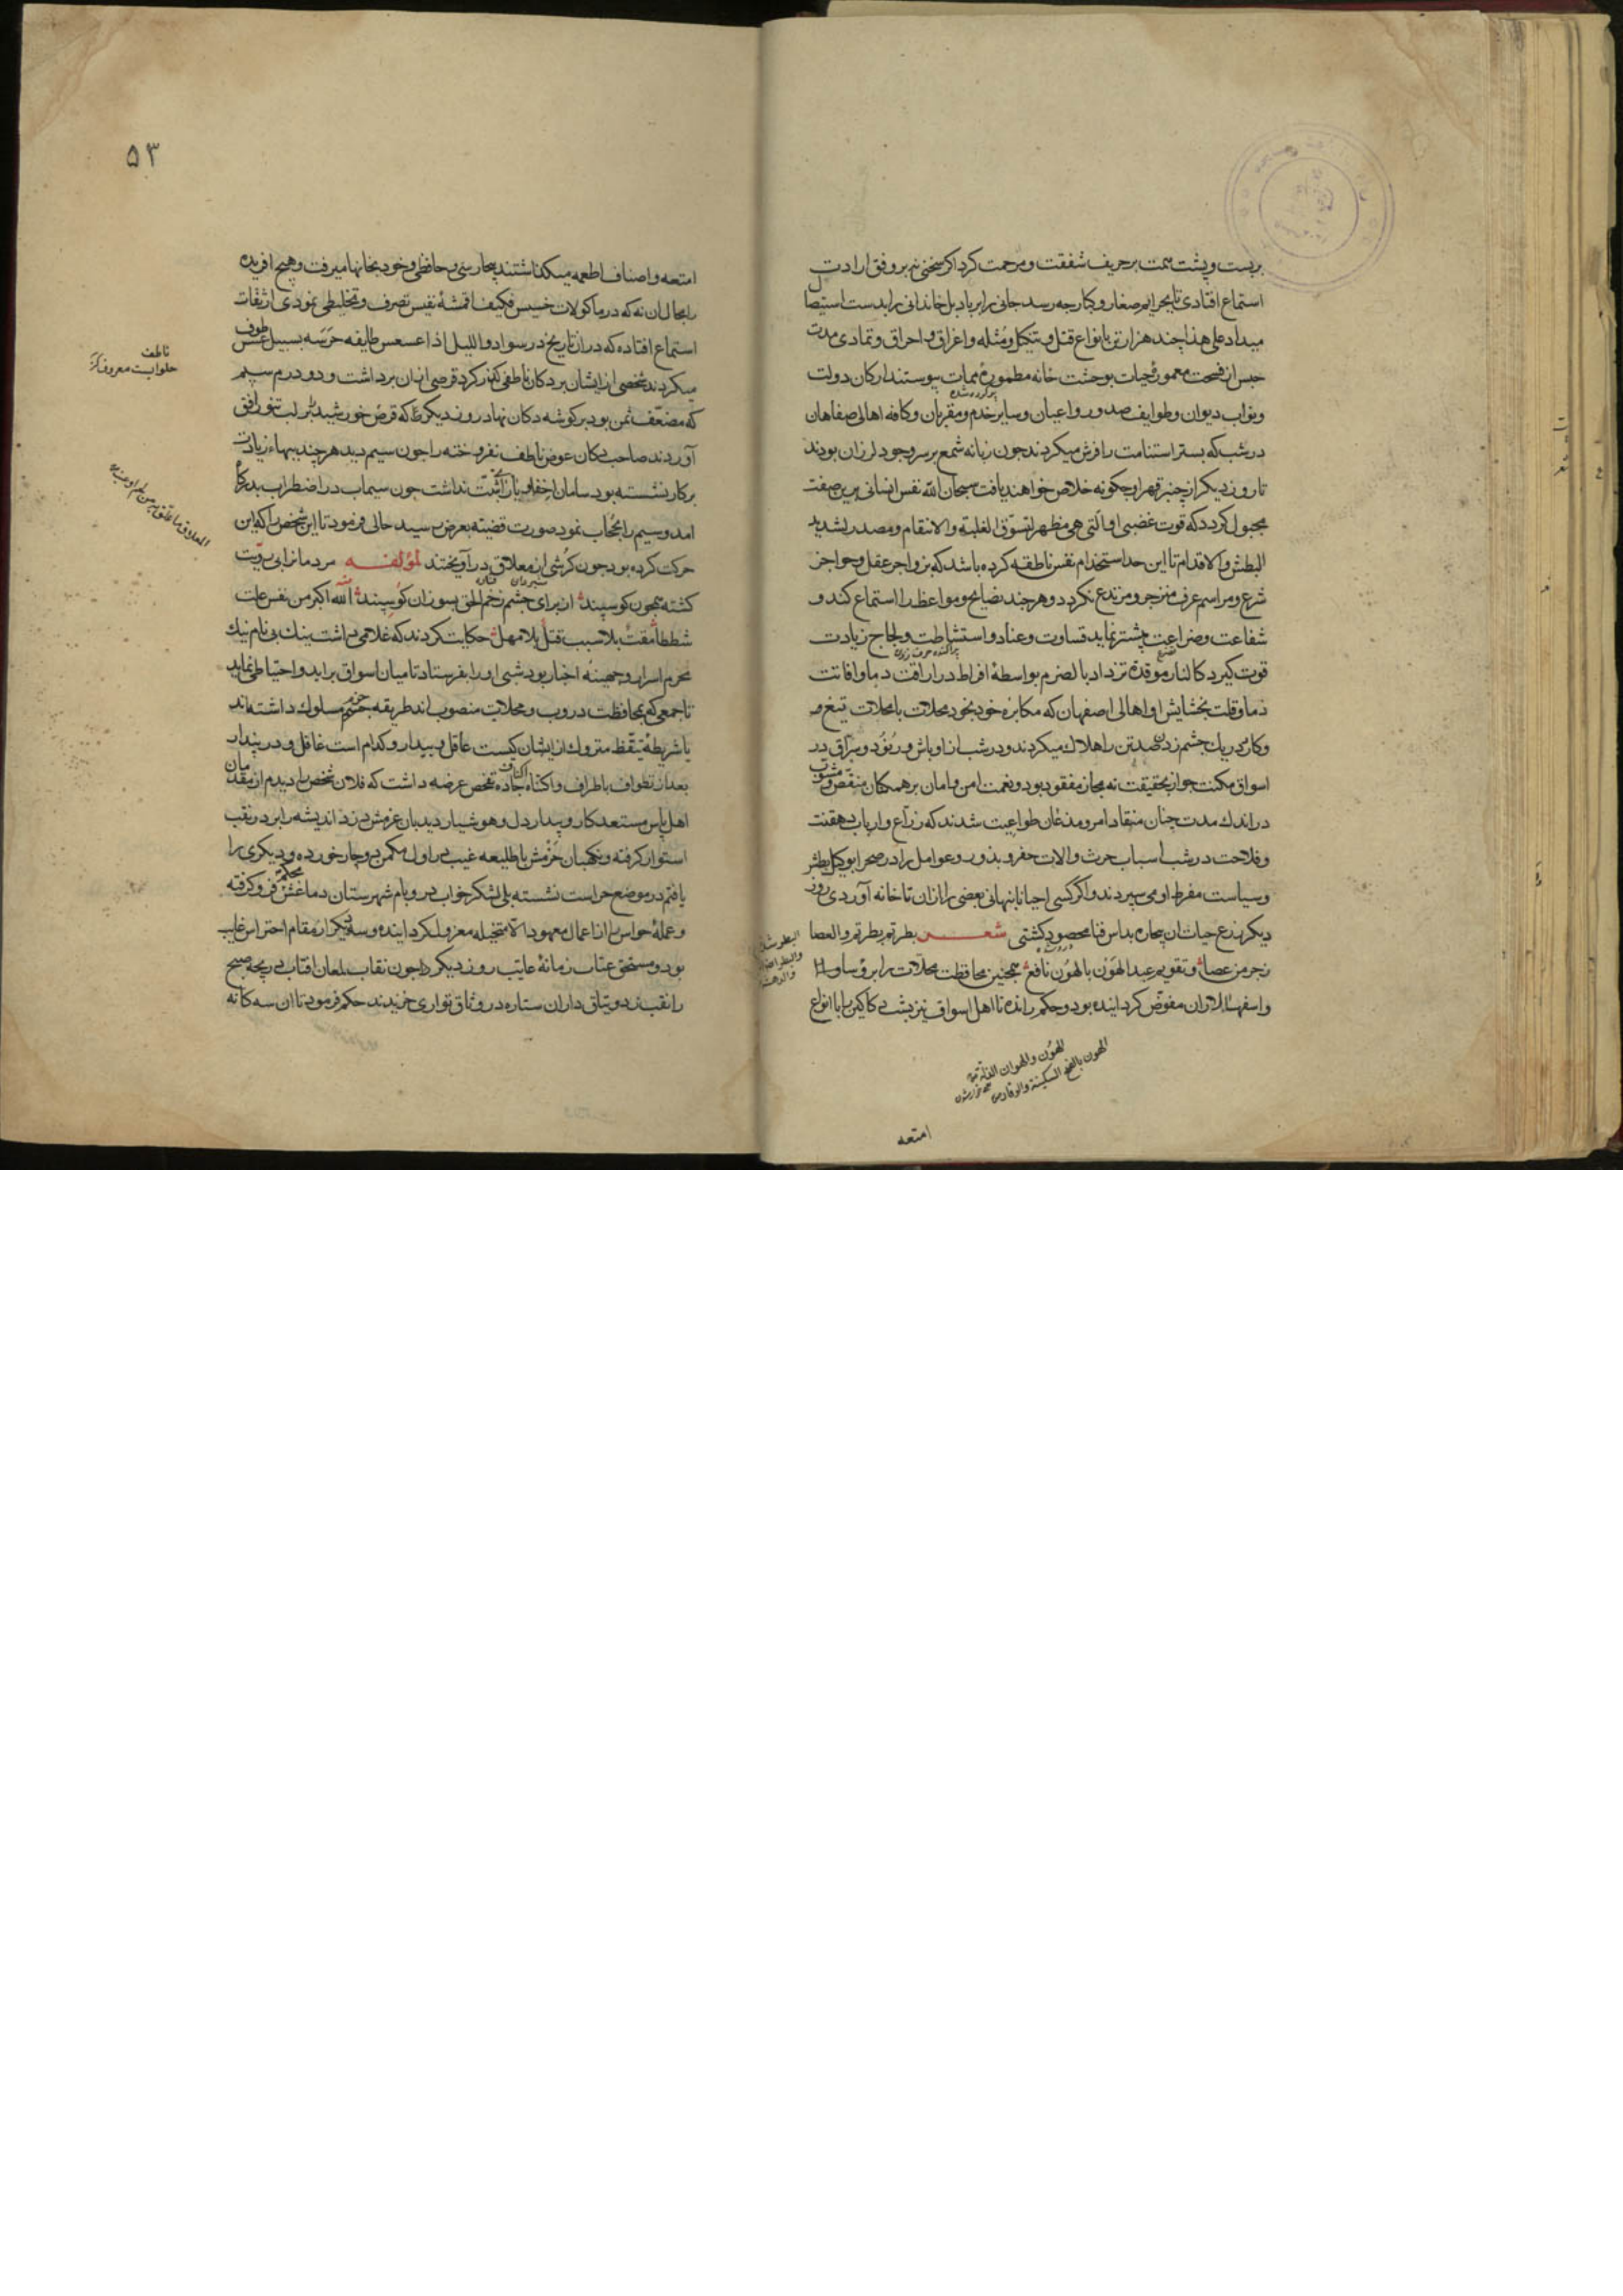 بربست و پشت همت بر حریف شفقت و مرحمت کرد اکر سخنی نه بر وفق ارادت
استماع افتادی تا بجرایم صغار و کبار چه رسد جانی را بر باد بل خاندانی را بدست استیصال
میداد علی هذا چند هزار تن بانواع قتل و تنکیل و مثله و اغراق و احراق و تمادی مدت
حبس از فسحت معمورهٔ حیات بوحشت خانه مطمورهٔ ممات پیوستند ارکان دولت
و نواب دیوان و طوایف صدور و اعیان و سایر خدم و مقربان و کافه اهالی صفاهان
در شب که بستر استنامت را فرش میکردند جون زبانه شمع بر سر وجود لرزان بودند
تا روز دیکر از چنبر قهر او جکونه خلاص خواهند یافت سبحان الله نفس انسانی برین صفت
مجبول کردد که قوت غضبی او التی هی مظهر لتسوق الغلبة والانتقام ومصدر لشدید
البطش والاقدام تا این حد استخدام نفس ناطقه کرده باشد که بزواجر عقل و حواجز
شرع و مراسم عرف منزجر و مرتدع نکردد و هر چند نصایح و مواعظ را استماع کند و
شفاعت و ضراعت پیشتر نماید قساوت و عناد و استشاطت و لجاج زیادت
قوت کیرد کالنار موقدة تزداد بالضرم بواسطهٔ افراط در اراقت دما و افاتت
ذما و قلت بخشایش او اهالی اصفهان که مکابره خود بخود محلات بامحلات تیغ و
وکارد در یك جشم زدن صد تن را هلاك میکردند و در شب از اوباش و رنود و سراق در
اسواق مکنت جواز بحقیقت نه بمجاز مفقود بود و نعمت امن و امان بر همکان منقص و مشوب
در اندك مدت چنان منقاد امر و مذعان طواعیت شدند که زراع و ارباب دهقنت
و فلاحت در شب اسباب حرث و الات حفر و بذور و عوامل را در صحرا بوکیل بطش
و سیاست مفرط او می سپردند و اکر کسی احیانا پنهانی بعضی را از ان تا خانه آوردی روز
دیکر زرع حیات ان بیجاره بداس فنا محصود کشتی شعر بطر تم بطر تم والعصا
زجر من عصا و تقویم عبد الهون بالهون نافع همچنین محافظت محلات را بر رؤسا و
و اسفهسالاران مفوض کردانیده بود و حکم رانده تا اهل اسواق نیز بشب دکاکین را با انواع
الهون والهوان الذلة
الهون بالفتح السکینة والوقار
امتعه
۵۳
امتعه و اصناف اطعمه میکذاشتند بیحارسی و حافظی و خود بخانها میرفت و هیچ افریده
را مجال ان نه که در ماکولات خسیس فکیف اقشهٔ نفیس تصرف و تخلیطی نمودی از ثقات
استماع افتاده که در ان تاریخ در سواد واللیل اذا عسعس طایفه حرسه بسبیل عسس طوف
میکردند شخصی از ایشان بر دکان ناطفی کذر کرد قرصی از ان برداشت و دو درم سیم
که مضعف ثمن بود بر کوشه دکان نهاد روز دیکر که قرص خورشید بر لب تنور افق
آوردند صاحب دکان عوض ناطف نفروخته را جون سیم دید هر چند ببهاء زیادت
بر کار نشسته بود سامان اخفاء و یارای تثبت نداشت جون سیماب در اضطراب بدرکاه
امد و سیم را بحجاب نمود صورت قضیه بعرض رسید حالی فرمود تا این شخص را که این
حرکت کرده بود جون کرشی از معلاق در آویختند لمؤلفه مردمانرا بی رویت
کشته همچون کوسپند از برای چشم زخم الحق بسوزان کو سپند الله اکبر من نفس علت
شططا مقت بلا سبب قتل بلا مهل حکایت کردند که غلامی داشت بینك بی نام نیك
محرم اسرار و جهینهٔ اخبار بود شبی او را بفرستاد تا میان اسواق براید و احتیاطی نماید
تا جمعی که بمحافظت دروب و محلات منصوب اند طریقه حزم مسلوك داشته اند
یا شریطهٔ تیقظ متروك از ایشان کیست عاقل و بیدار و کدام است غافل و در پندار
بعد از تطواف باطراف و اکناف جاده تفحص عرضه داشت که فلان شخص را دیدم از مقدمان
اهل پاس مستعد کار و بیدار دل و هوشیار دیدبان عزمش دزد اندیشه را بر در نقب
استوار کرفته و نکهبان حزمش با طلیعه غیب در اول مکمن دوچار خورده و دیکری را
یافتم در موضع حراست نشسته بلی لشکر خواب در و بام شهرستان دماغش فرو کرفته
و عملهٔ حواس را از اعمال معهود الا متخیله معزول کردانیده و سه دیکر از مقام احتراس غایب
بود و مستحق عتاب زمانهٔ عایب روز دیکر جون نقاب لمعان افتاب دریچه صبح
را نقب زد و یتاق داران ستاره در وثاق تواری خزیدند حکم فرمود تا ان سه کانه
ناطف
حلوایست معروف